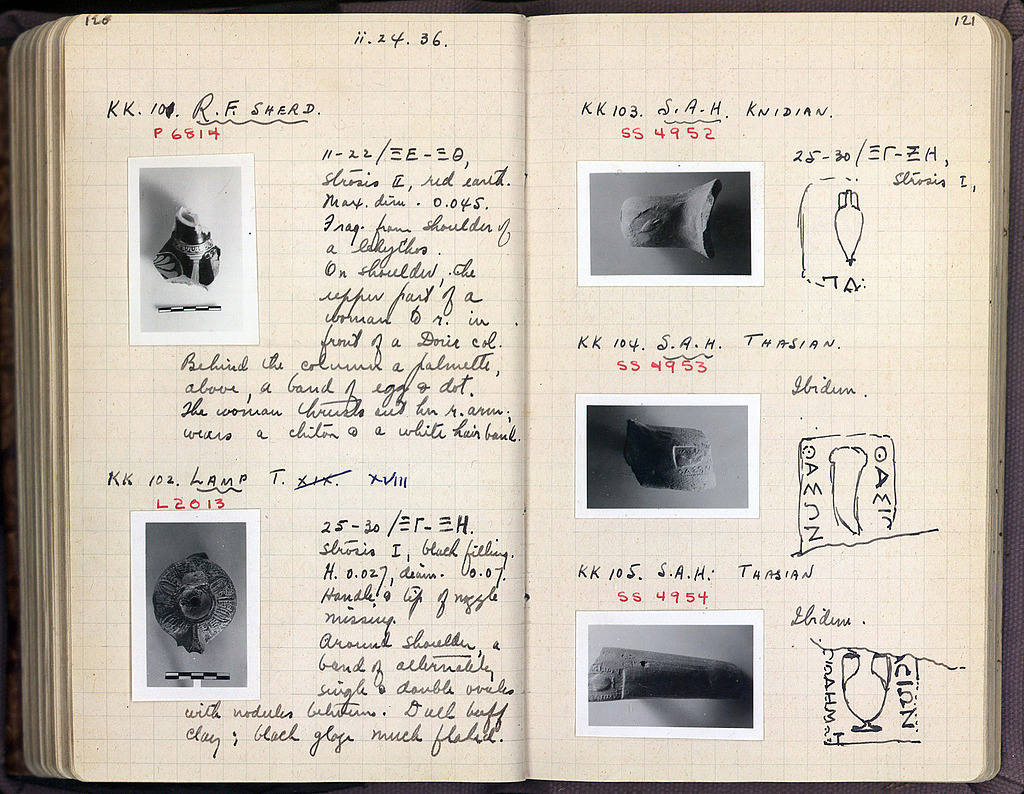 120
ii.24.36.
KK. 101. R.F. SHERD.
P 6814
11-22/ΞΕ-ΞΘ,
Strosis II, red earth.
Max. dim. 0.045.
Frag. from shoulder of
a lekythos.
On shoulder, the
upper part of a
woman to r. in
front of a Doric col.
Behind the column a palmette,
above, a band of egg & dot.
The woman thrusts out her r. arm;
wears a chiton & a white hair band.
KK 102. LAMP T. XIX. XVIII
L 2013
25-30/ΞΓ-ΞΗ.
Strosis I, black filling.
H. 0.027, diam. 0.07.
Handle & tip of nozzle
missing.
Around shoulder, a
band of alternately
single & double ovules
with nodules between. Dull buff
clay; black glaze much flaked.
121
KK 103. S.A.H. KNIDIAN.
SS 4952
25-30/ΞΓ-ΞΗ,
Strosis I,
ΠΑ:
KK 104. S.A.H. THASIAN.
SS 4953
Ibidem.
ΘΑΣΙΩ
ΘΑΣΩΝ
KK 105. S.A.H. THASIAN
SS 4954
Ibidem.
ΣΙΩΝ